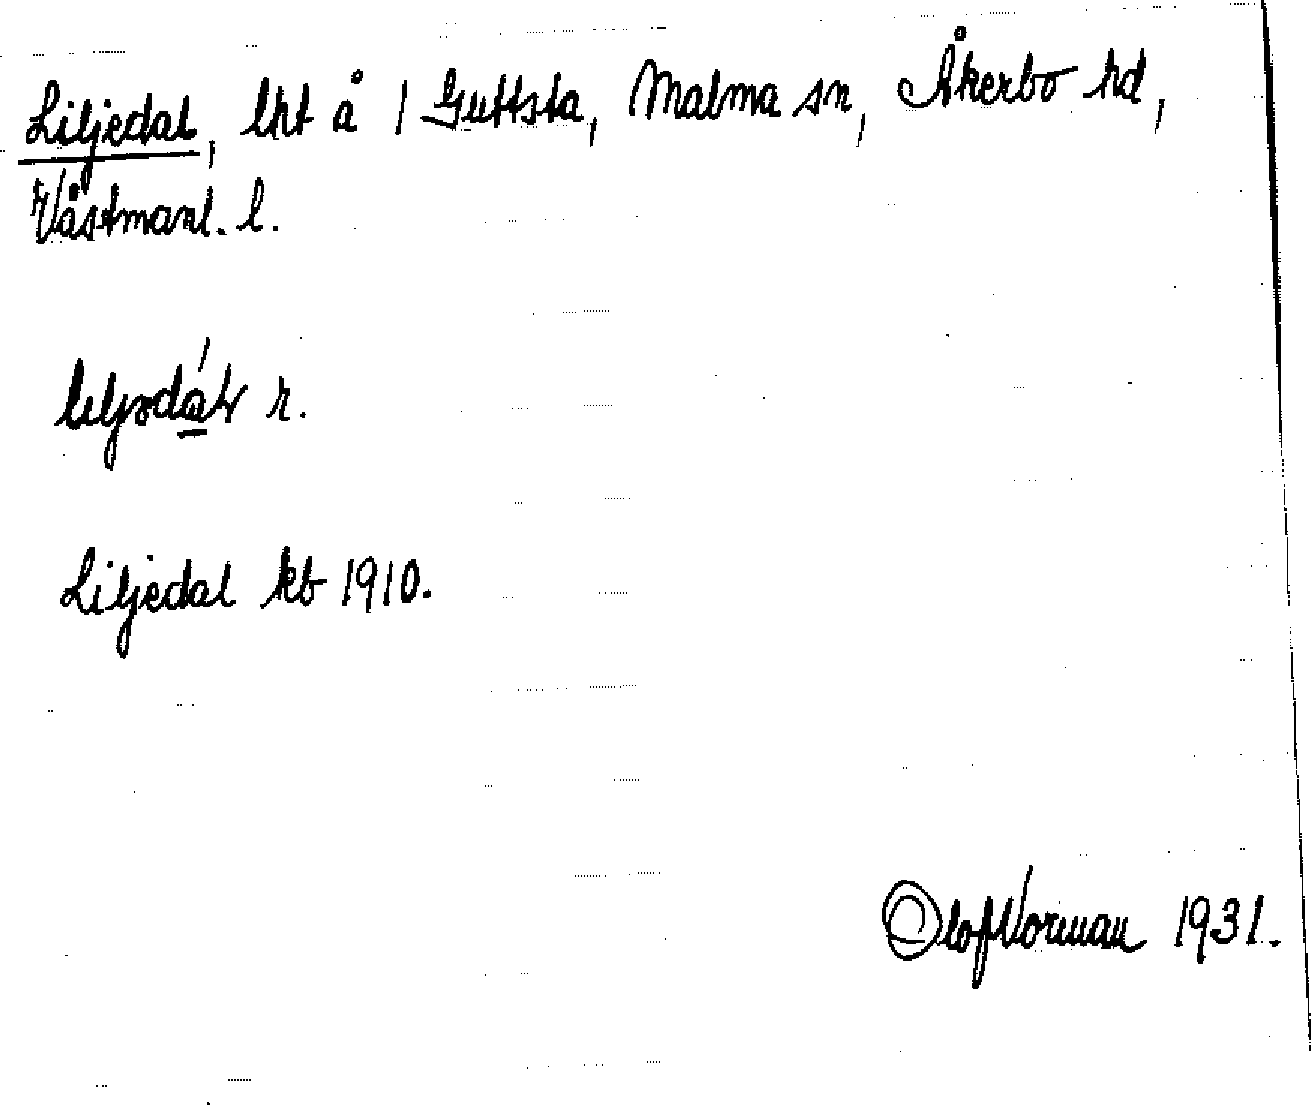 Liljedal, lht å 1 Guttsta, Malma sn, Åkerbo hd,
Västmanl. l.
Liljedal kb 1910.
Olof Norman 1931.